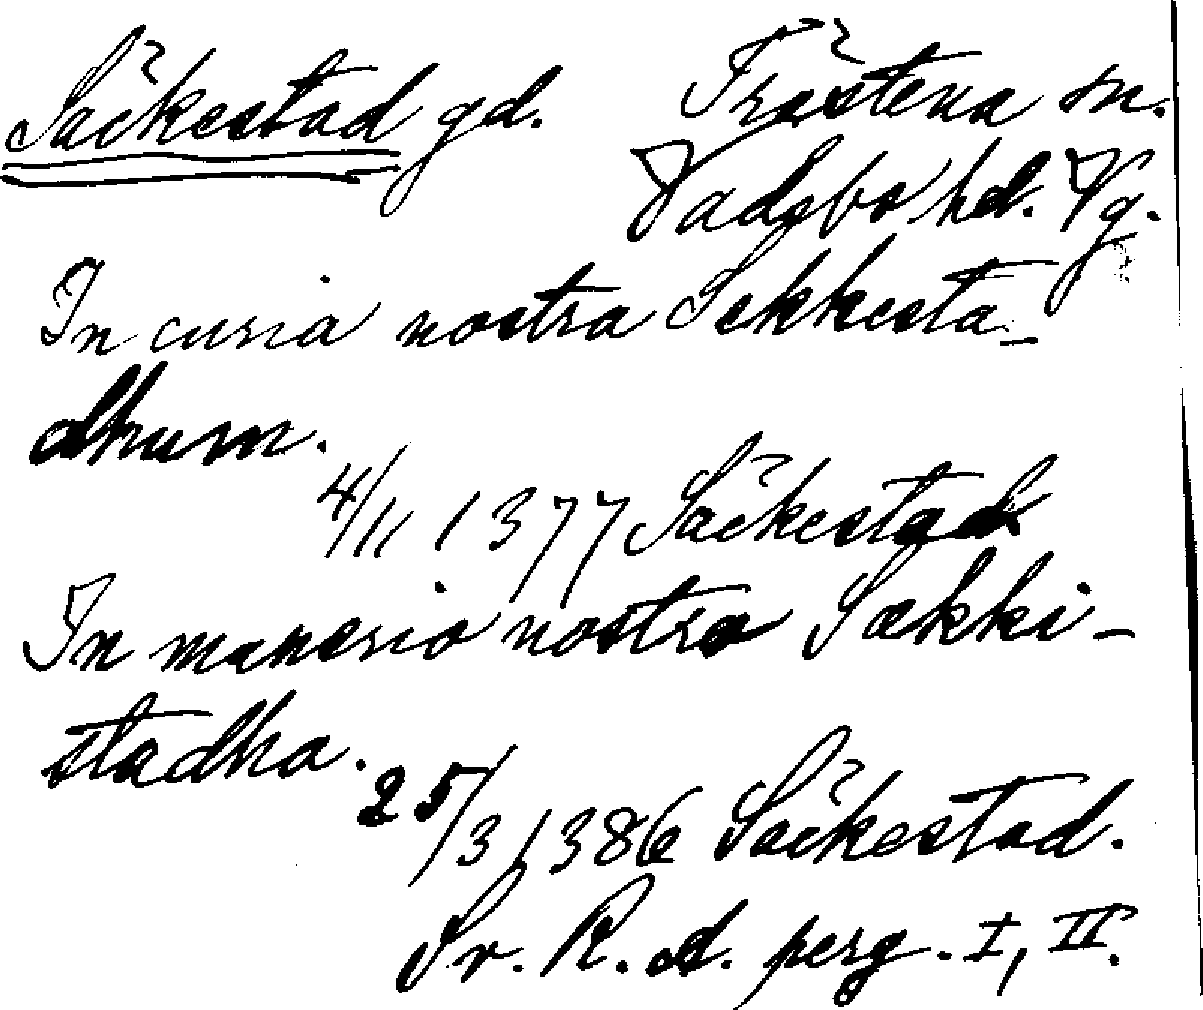 Säckestad gd. Frästena sn.
Vadsbo hd. Vg.
In curia nostra Sekkesta-
dhum.
4/11 1377 Säckestad
In manerio nostro Sækki-
stadha.
25/3 1386 Säckestad.
Sv. R. A. perg. I, II.